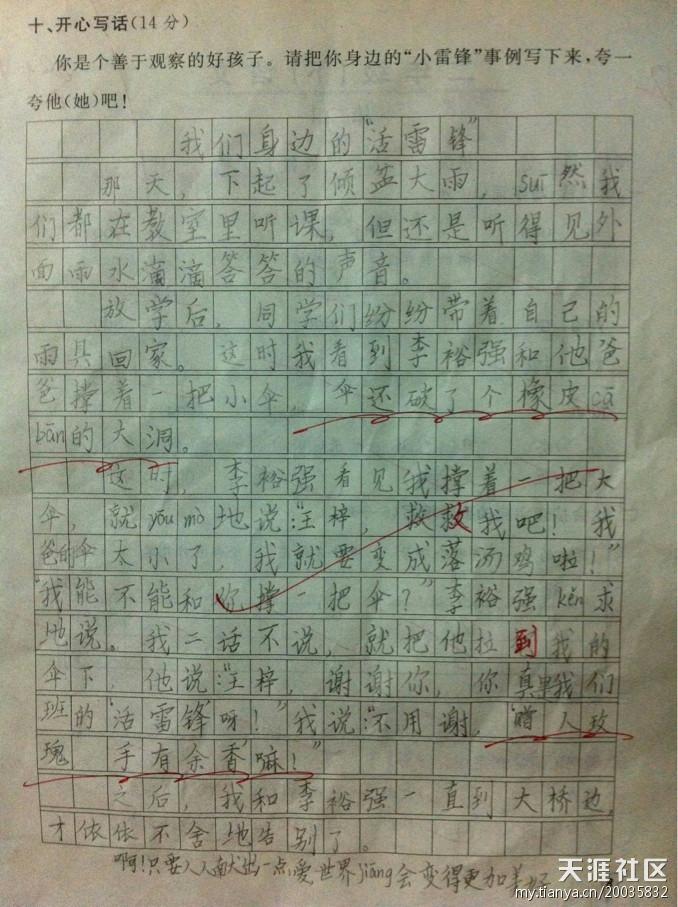 十、开心写话(14分)
你是个善于观察的好孩子。请把你身边的“小雷锋”事例写下来,夸一
夸他(她)吧!
我们身边的“活雷锋”
那天，下起了倾盆大雨，suī然我
们都在教室里听课，但还是听得见外
面雨水滴滴答答的声音。
放学后，同学们纷纷带着自己的
雨具回家。这时我看到李裕强和他爸
爸撑着一把小伞，伞还破了个橡皮cā
bān的大洞。
这时，李裕强看见我撑着一把大
伞，就yōu mò地说：“王梓，救救我吧！我
爸的伞太小了，我就要变成落汤鸡啦！”
“我能不能和你撑一把伞？”李裕强kěn求
地说。我二话不说，就把他拉到我的
伞下，他说：“王梓，谢谢你，你真是我们
班的‘活雷锋’呀！”我说：“不用谢，‘赠人玫
瑰，手有余香’嘛！”
之后，我和李裕强一直到大桥边，
才依依不舍地告别了。
啊！只要人人献出一点爱，世界jiāng会变得更加美好
天涯社区
my.tianya.cn/20035832